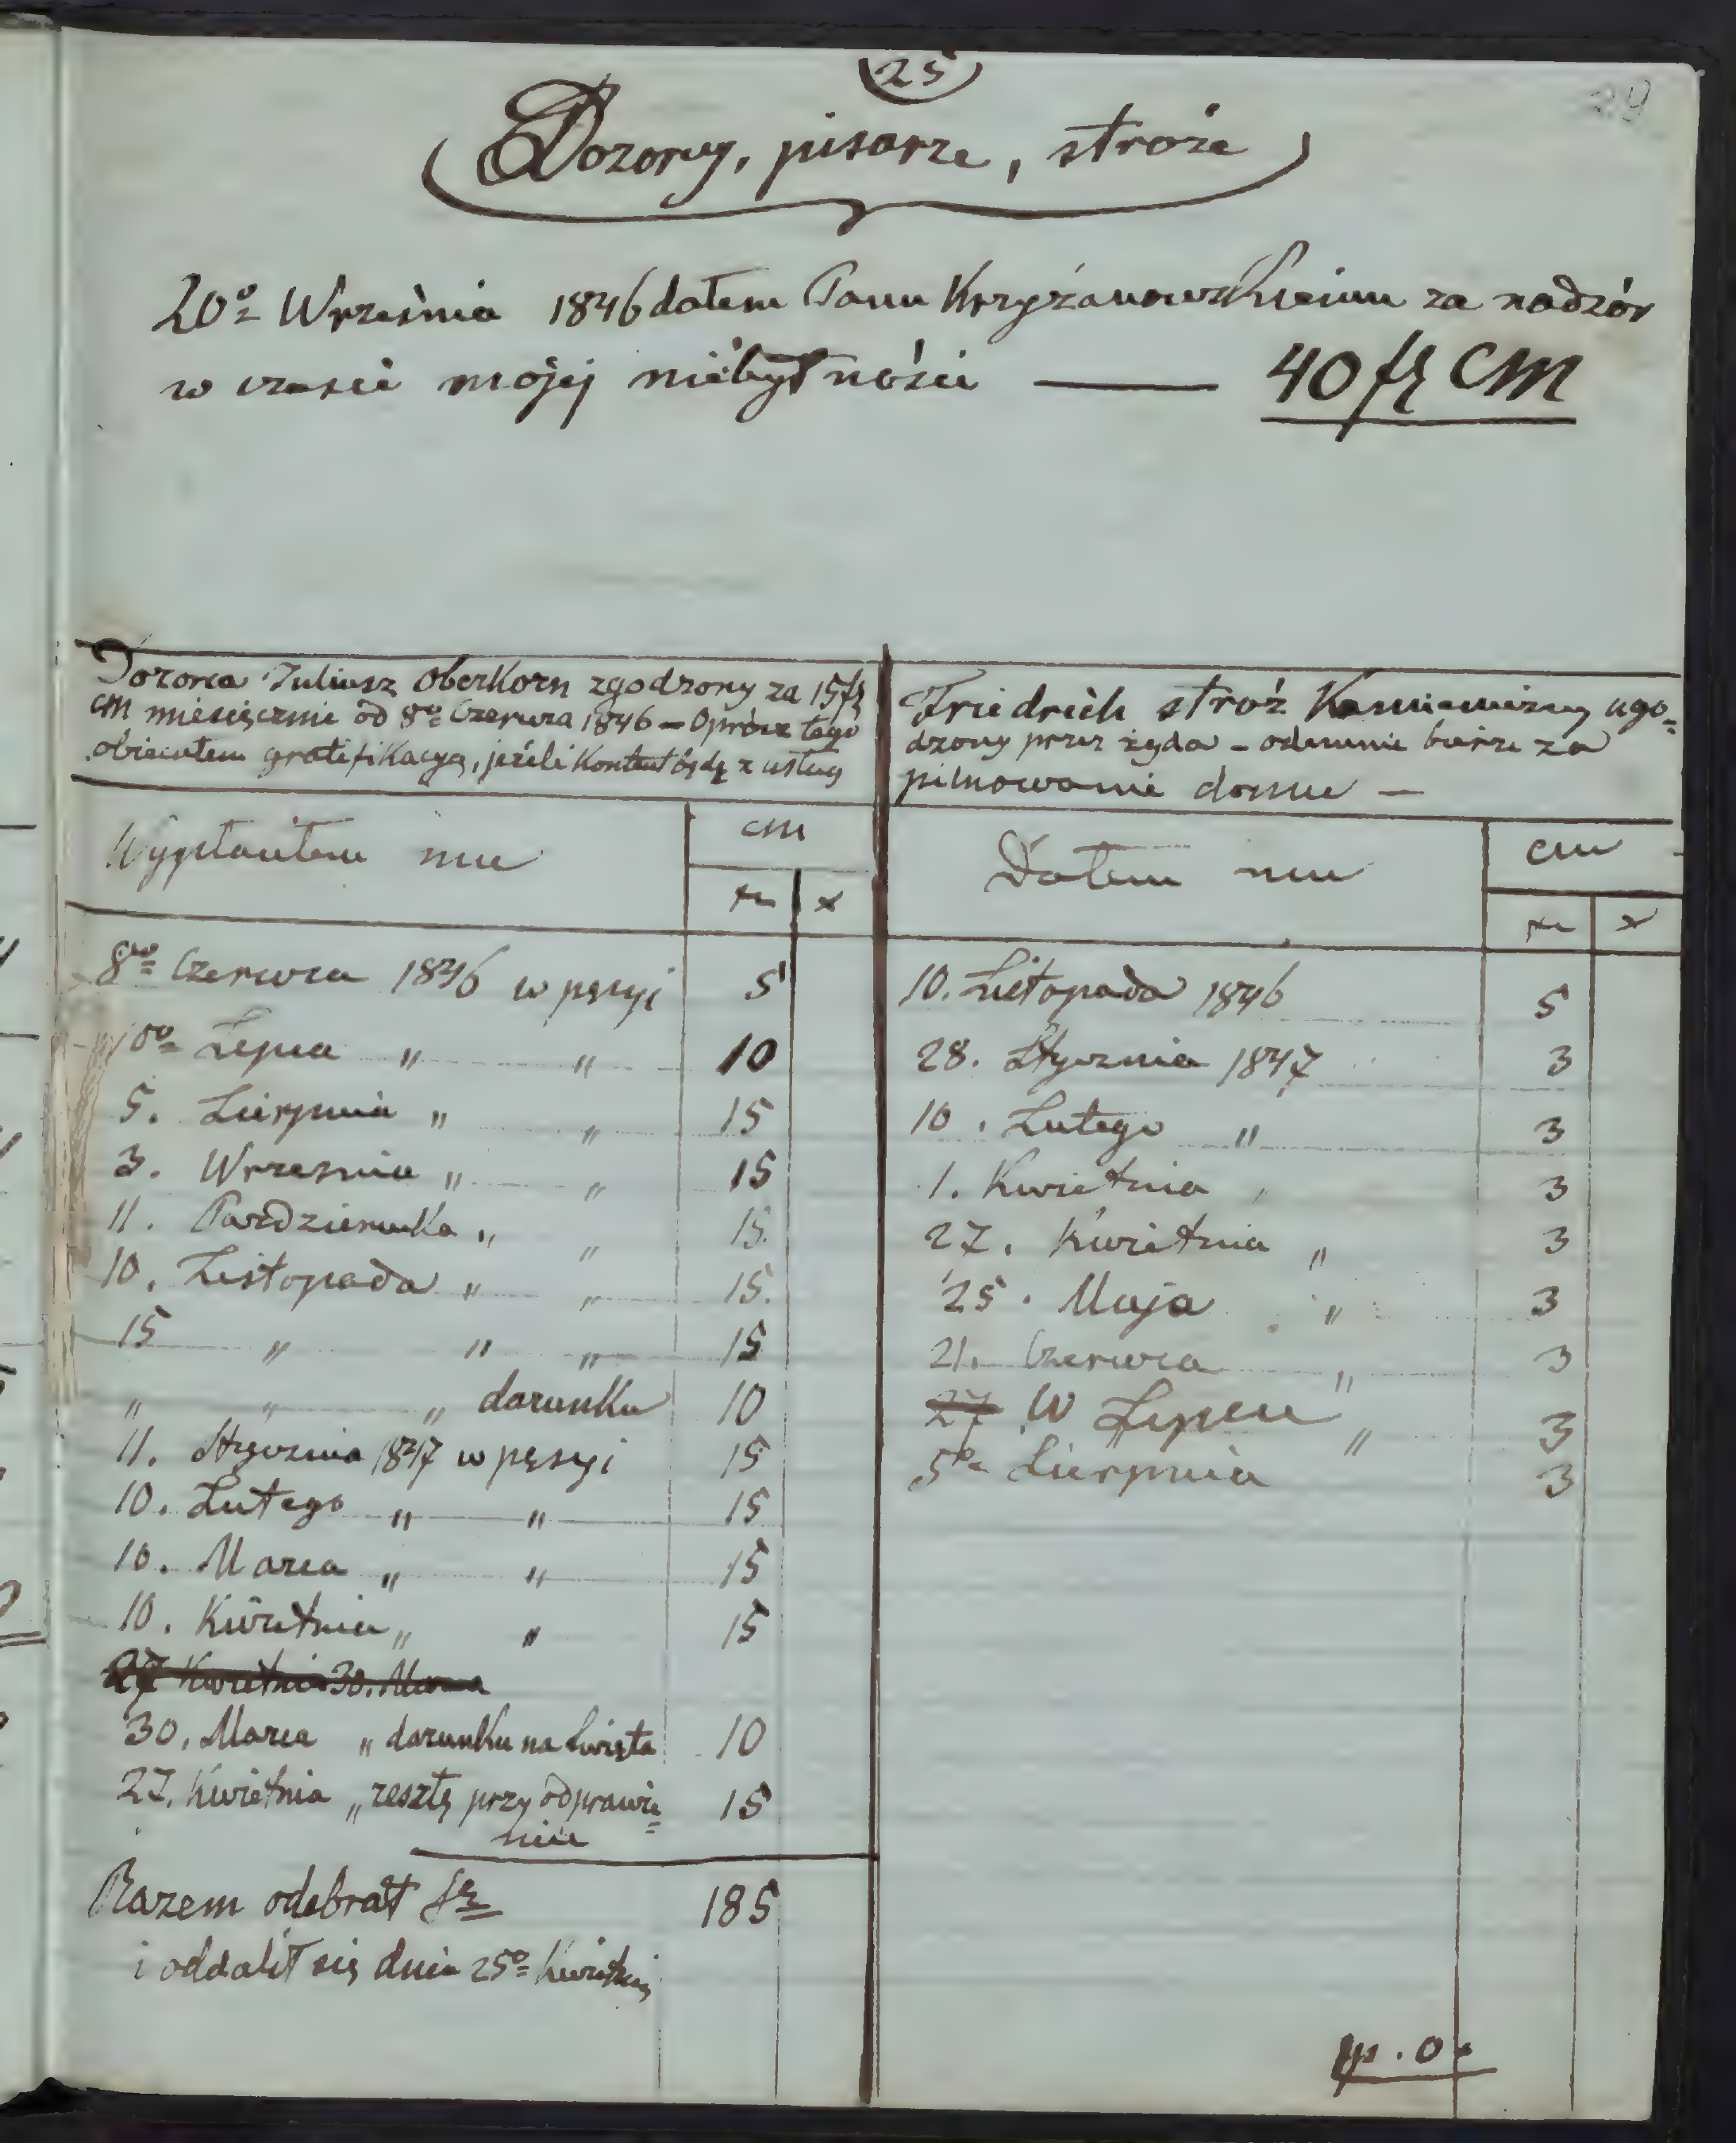 25
29
Dozorcy, pisarze, stróże
20º Września 1846 dałem Panu Krzyżanowskiemu za nadzór
w czasie mojéj niebytności — 40 fr CM
Dozorca Juliusz Oberkorn zgodzony za 15 fr
CM miesięcznie od 8º Czerwca 1846 – Oprócz tego
obiecałem gratifikacyą, jeżeli kontent będę z usług
Wypłaciłem mu
CM
xr x
8º Czerwca 1846 w pęsyi 5
10º Lipca " " 10
5. Sierpnia " " 15
3. Września " " 15
11. Pazdziernika " " 15.
10. Listopada " " 15.
15 " " " 15
" " " darunku 10
11. Stycznia 1847 w pęsyi 15
10. Lutego " " 15
10. Marca " " 15
10. Kwietnia " " 15
27 Kwietnia 30. Marca
30. Marca " darunku na Święta 10
27. Kwietnia " resztę przy odprawie=
niu 15
Razem odebrał fr 185
i oddalił się dnia 25º Kwietnia
Friedrich stróż ugo=
dzony przez żyda – odemnie bierze za
pilnowanie domu —
Dałem mu
CM
xr x
10. Listopada 1846 5
28. Stycznia 1847 3
10. Lutego " 3
1. Kwietnia " 3
27. Kwietnia " 3
25. Maja " 3
21. Czerwca " 3
27 W Lipcu " 3
5º Sierpnia 3